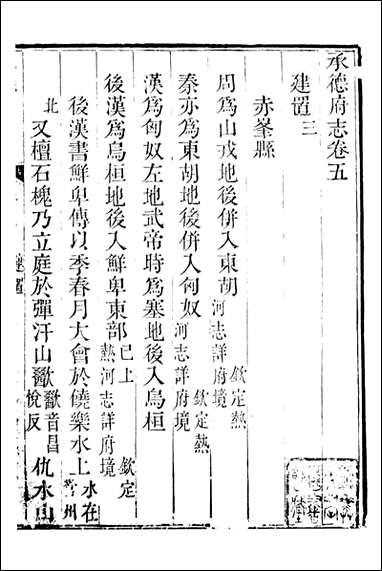 承德府志卷五
建置三
赤峯縣
周為山戎地後併入東胡欽定熱河志詳府境
秦亦為東胡地後併入匈奴欽定熱河志詳府境
漢為匈奴左地武帝時為塞地後入烏桓
後漢為烏桓地後入鮮卑東部已上欽定熱河志詳府境
後漢書鮮卑傳以季春月大會於饒樂水上水在州
北又檀石槐乃立庭於彈汗山歠歠音昌悅反仇水山
建置